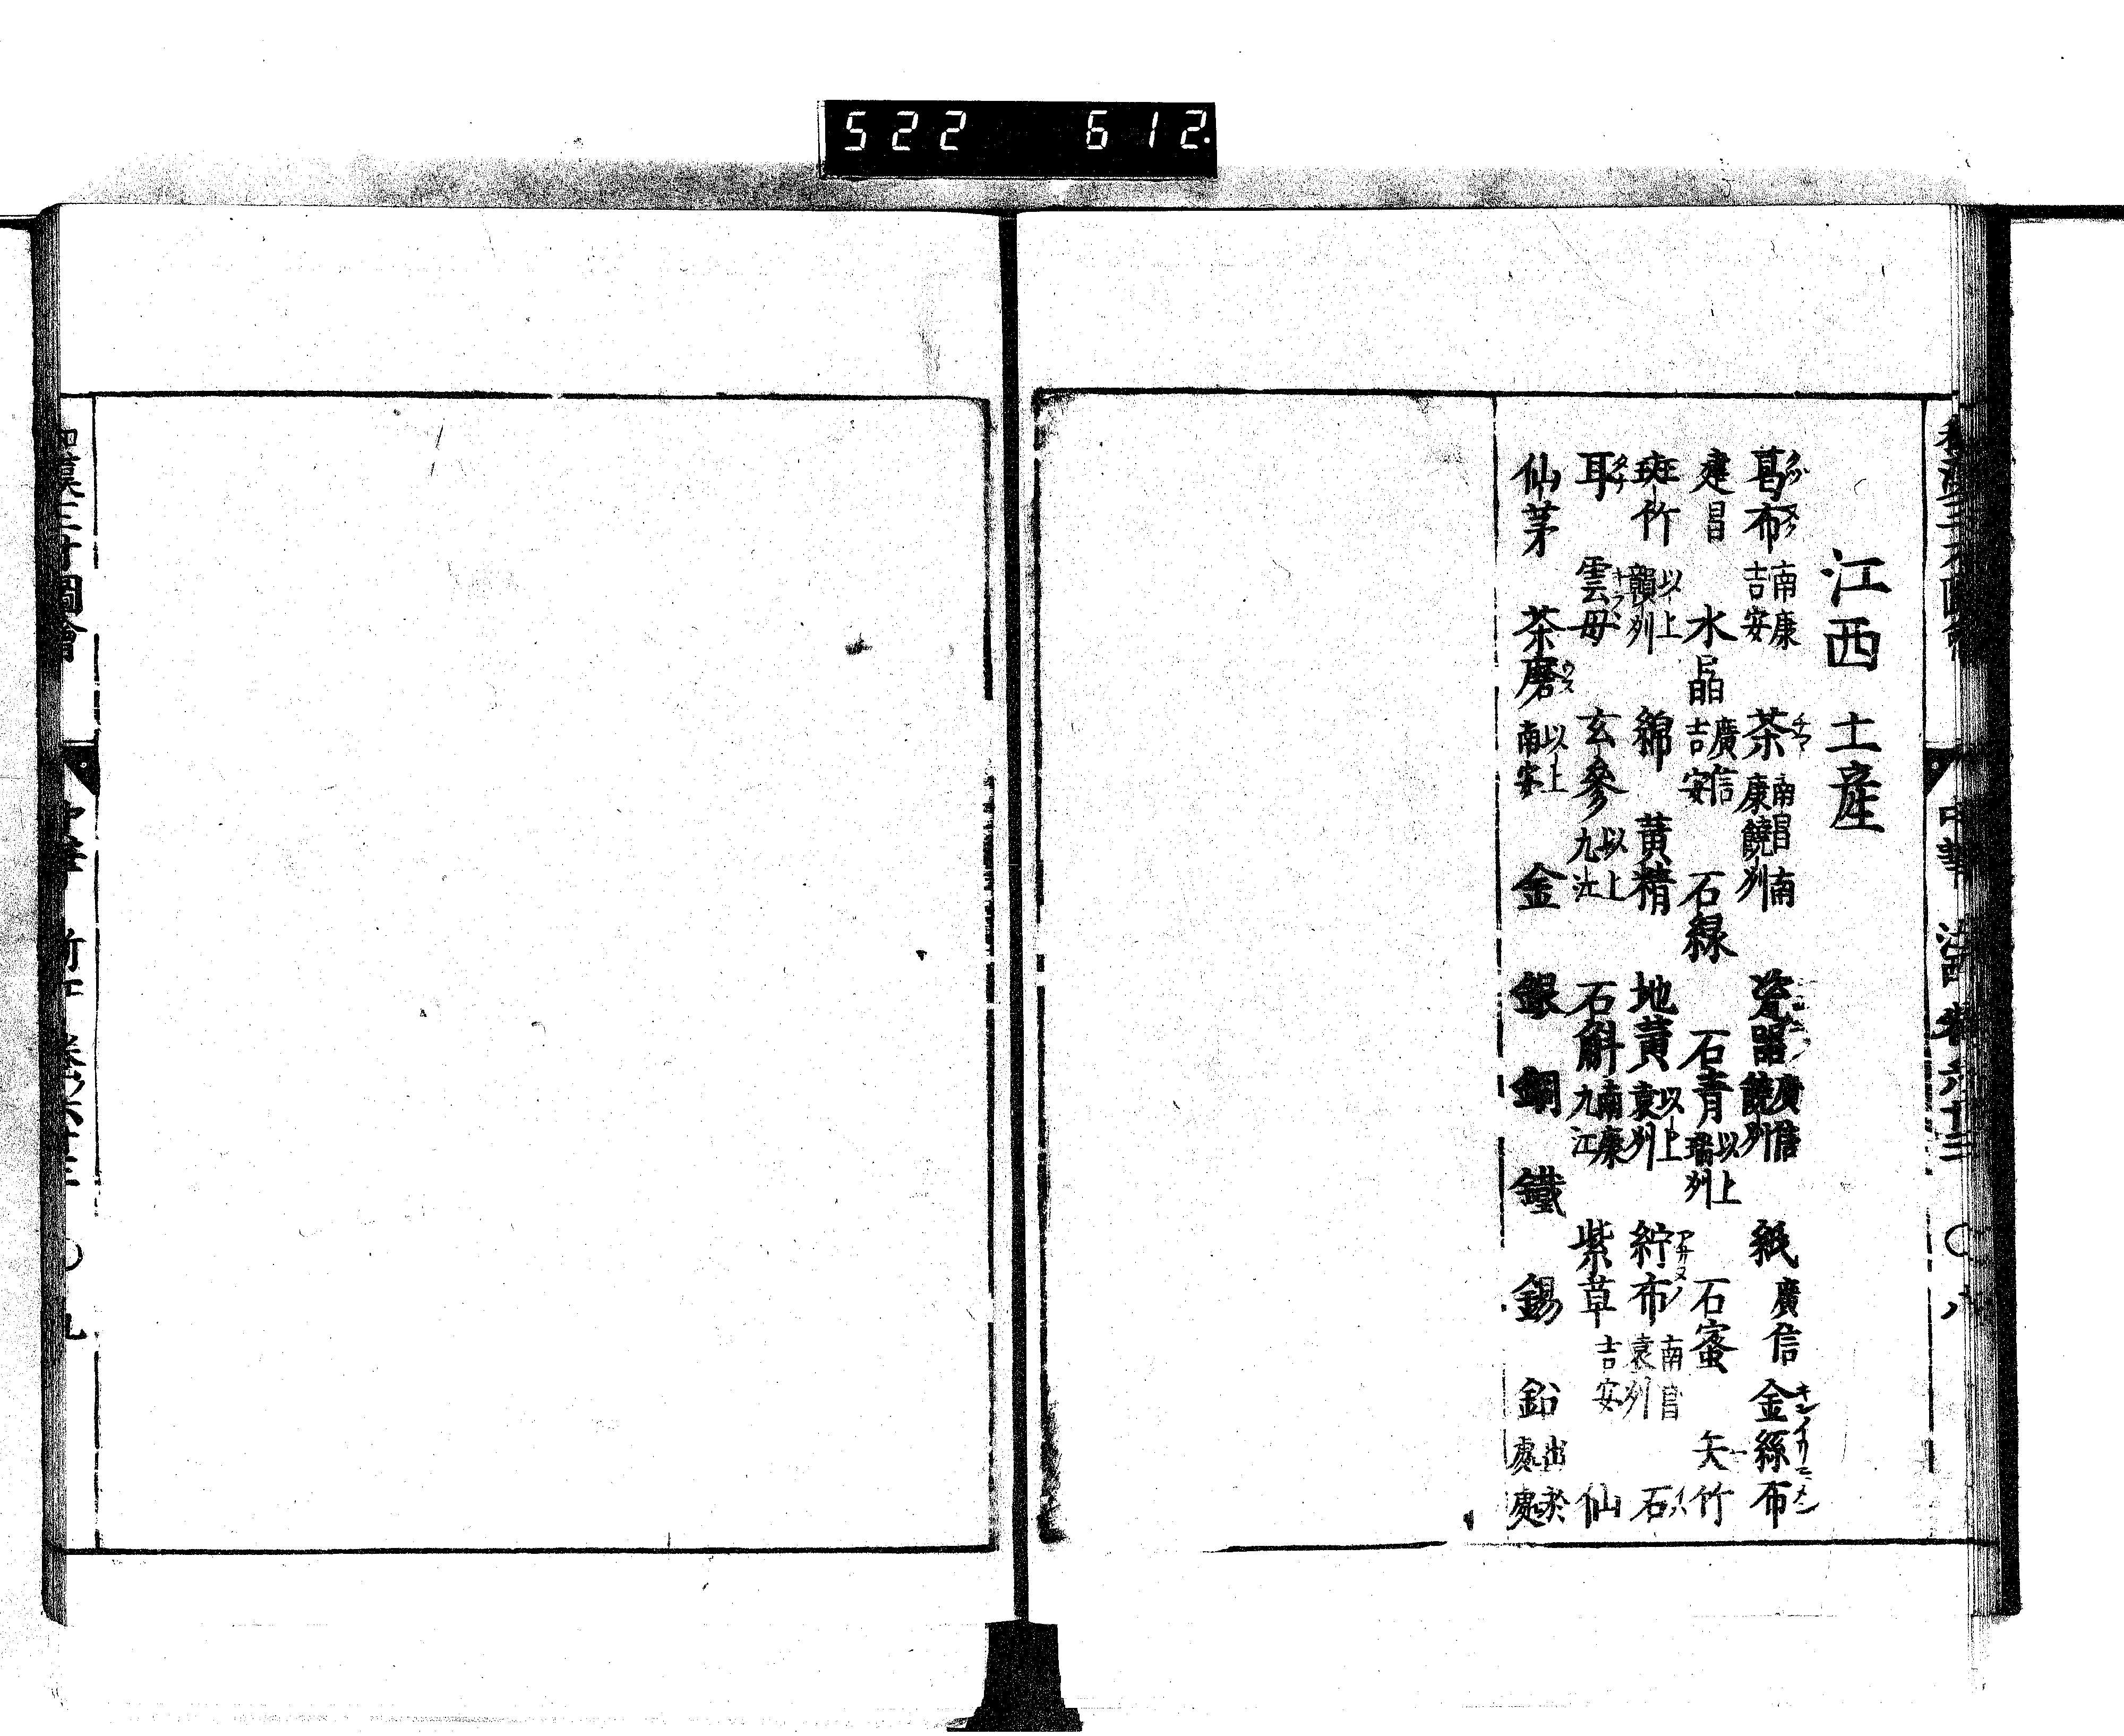 522 612.
和漢三才圖會 中華 江西 卷六十三 〇八
江西 土產
葛布 南康吉安 茶 南昌南康饒州 瓷器 廣信饒州 紙 廣信 金絲布
建昌 水晶 廣信吉安 石緑 石青 以上瑞州 石蜜 矢竹
斑竹 以上贛州 綿 黃精 地黃 以上袁州 紵布 南昌袁州 石
耳 雲母 玄參 以上九江 石斛 南康九江 紫草 吉安 仙
仙茅 茶磨 以上南安 金 銀 銅 鐵 錫 鉛 出於處處
和漢三才圖會 中華 浙江 卷六十三 〇九